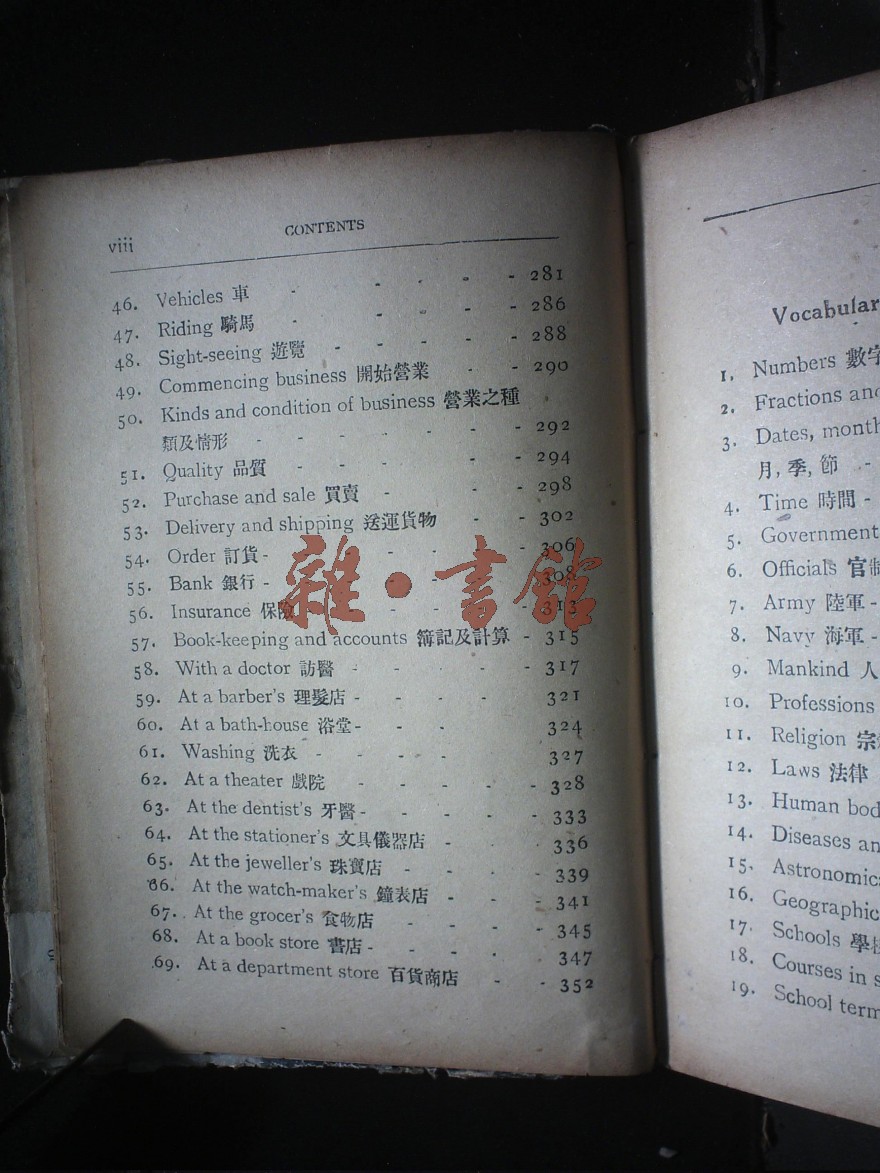 viii
CONTENTS
46. Vehicles 車 - - - - - 281
47. Riding 騎馬 - - - - - 286
48. Sight-seeing 遊覽 - - - - - 288
49. Commencing business 開始營業 - - 290
50. Kinds and condition of business 營業之種
類及情形 - - - - - - - 292
51. Quality 品質 - - - - - - 294
52. Purchase and sale 買賣 - - - - 298
53. Delivery and shipping 送運貨物 - - 302
54. Order 訂貨 - - - - - 306
55. Bank 銀行 - - - - - 308
56. Insurance 保險 - - - - - 313
57. Book-keeping and accounts 簿記及計算 - 315
58. With a doctor 訪醫 - - - - - 317
59. At a barber's 理髮店 - - - - 321
60. At a bath-house 浴堂 - - - 324
61. Washing 洗衣 - - - - 327
62. At a theater 戲院 - - - - - 328
63. At the dentist's 牙醫 - - - - - 333
64. At the stationer's 文具儀器店 - - - 336
65. At the jeweller's 珠寶店 - - - - 339
66. At the watch-maker's 鐘表店 - - - 341
67. At the grocer's 食物店 - - - - 345
68. At a book store 書店 - - - - - 347
69. At a department store 百貨商店 - - 352
雜·書館
Vocabular
1. Numbers 數字
2. Fractions and
3. Dates, month
月, 季, 節 -
4. Time 時間 -
5. Government
6. Officials 官制
7. Army 陸軍 -
8. Navy 海軍 -
9. Mankind 人
10. Professions
11. Religion 宗
12. Laws 法律
13. Human bod
14. Diseases an
15. Astronomica
16. Geographic
17. Schools 學校
18. Courses in s
19. School term